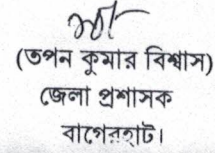 (তপন কুমার বিশ্বাস)
জেলা প্রশাসক
বাগেরহাট।